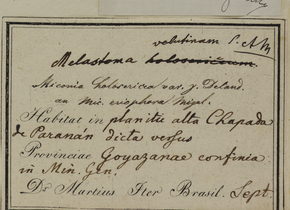 velutinum
Melastoma holosericeum.
Miconia holosericea var. γ. Decand.
an Mic. eriophora Miql.
Habitat in planitie alta Chapada
de Paranán dicta versus
Provinciae Goyazanae confinia
in Min. Gen.
Dr. Martius Iter Brasil. Sept.